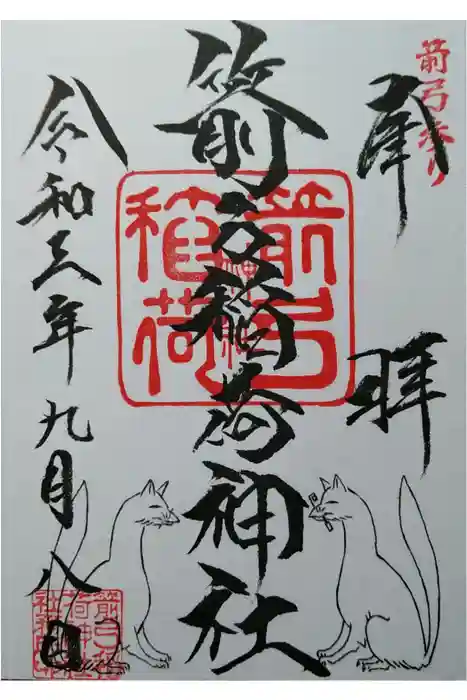 箭弓参り
奉拝
箭弓稲荷神社
箭弓稲荷
令和三年九月八日